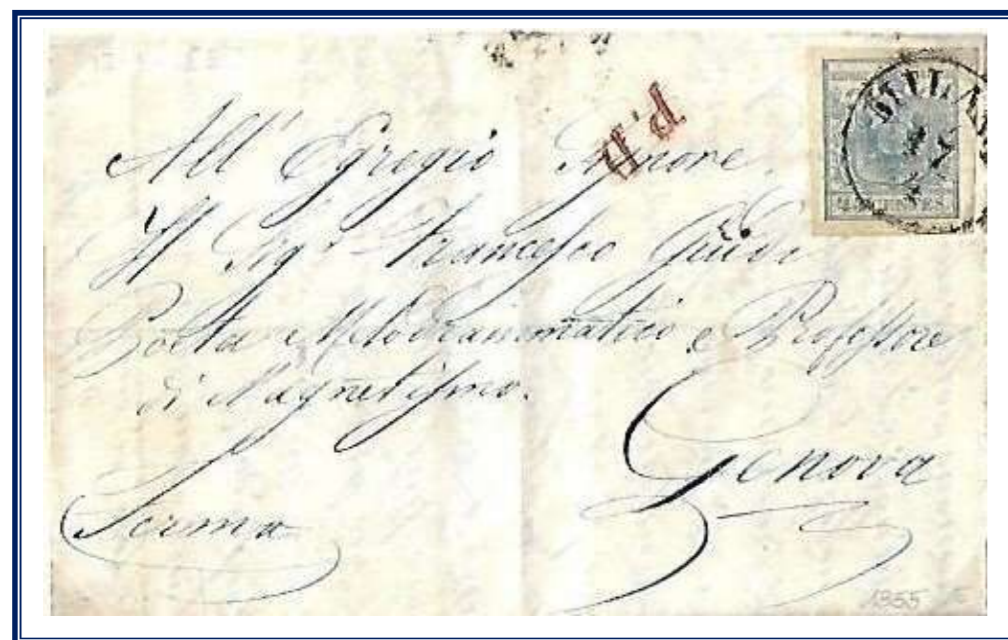 P.D.
MILANO
45 CENTES
All' Egregio Signore
Il Sigr Francesco Guidi
Poeta Melodrammatico e Professore
di Magnetismo.
Genova
Ferma
1855